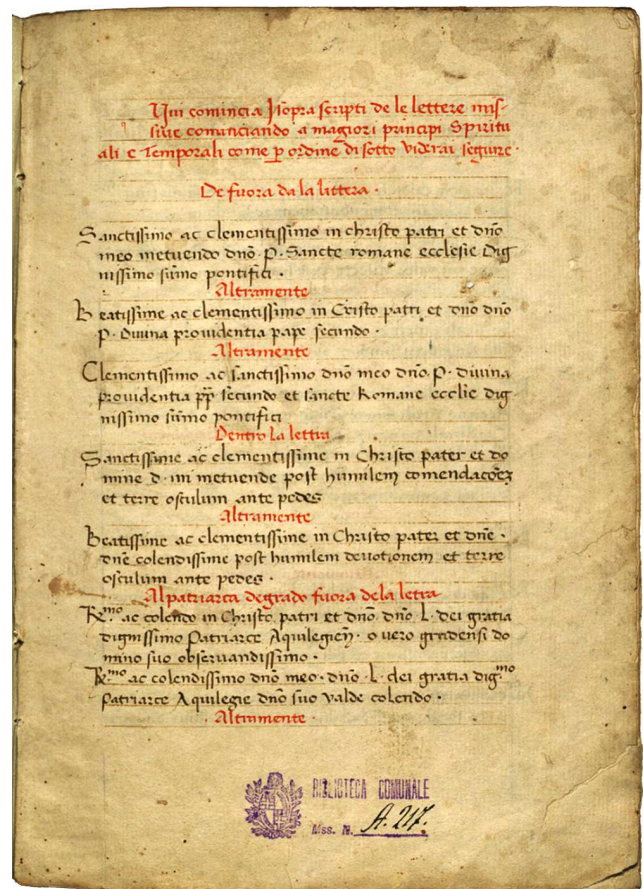 Qui comincia Isopra scripti de le lettere mis-
sive cominciando a magiori principi Spiritu
ali e Temporali come p ordine di sotto viderai seguire ·
De fuora da la littera ·
Sanctissimo ac clementissimo in christo patri et dno
meo metuendo dno · P · Sancte romane ecclesie Dig
nissimo sumo pontifici ·
Altramente
Beatissime ac clementissimo in Cristo patri et dno dno
P · Divina providentia pape secundo ·
Altramente
Clementissimo ac sanctissimo dno meo dno · P · divina
providentia pp secundo et sancte Romane ecclie dig
nissimo sumo pontifici
Dentro La lettra
Sanctissime ac clementissime in Christo pater et do
mine d · mi metuende post humilem comendacoez
et terre osculum ante pedes
Altramente
Beatissime ac clementissime in Christo pater et dne ·
dne colendissime post humilem devotionem et terre
osculum ante pedes ·
Al patriarca de grado fuora dela letra
R.mo ac colendo in Christo patri et dno dno L · dei gratia
dignissimo Patriarce Aquilegien · o vero gradensi do
mino suo observandissimo ·
R.mo ac colendissimo dno meo · dno · L · dei gratia dig.mo
Patriarce Aquilegie dno suo valde colendo ·
· Altramente ·
BIBLIOTECA COMUNALE
Mss. N. A. 217.